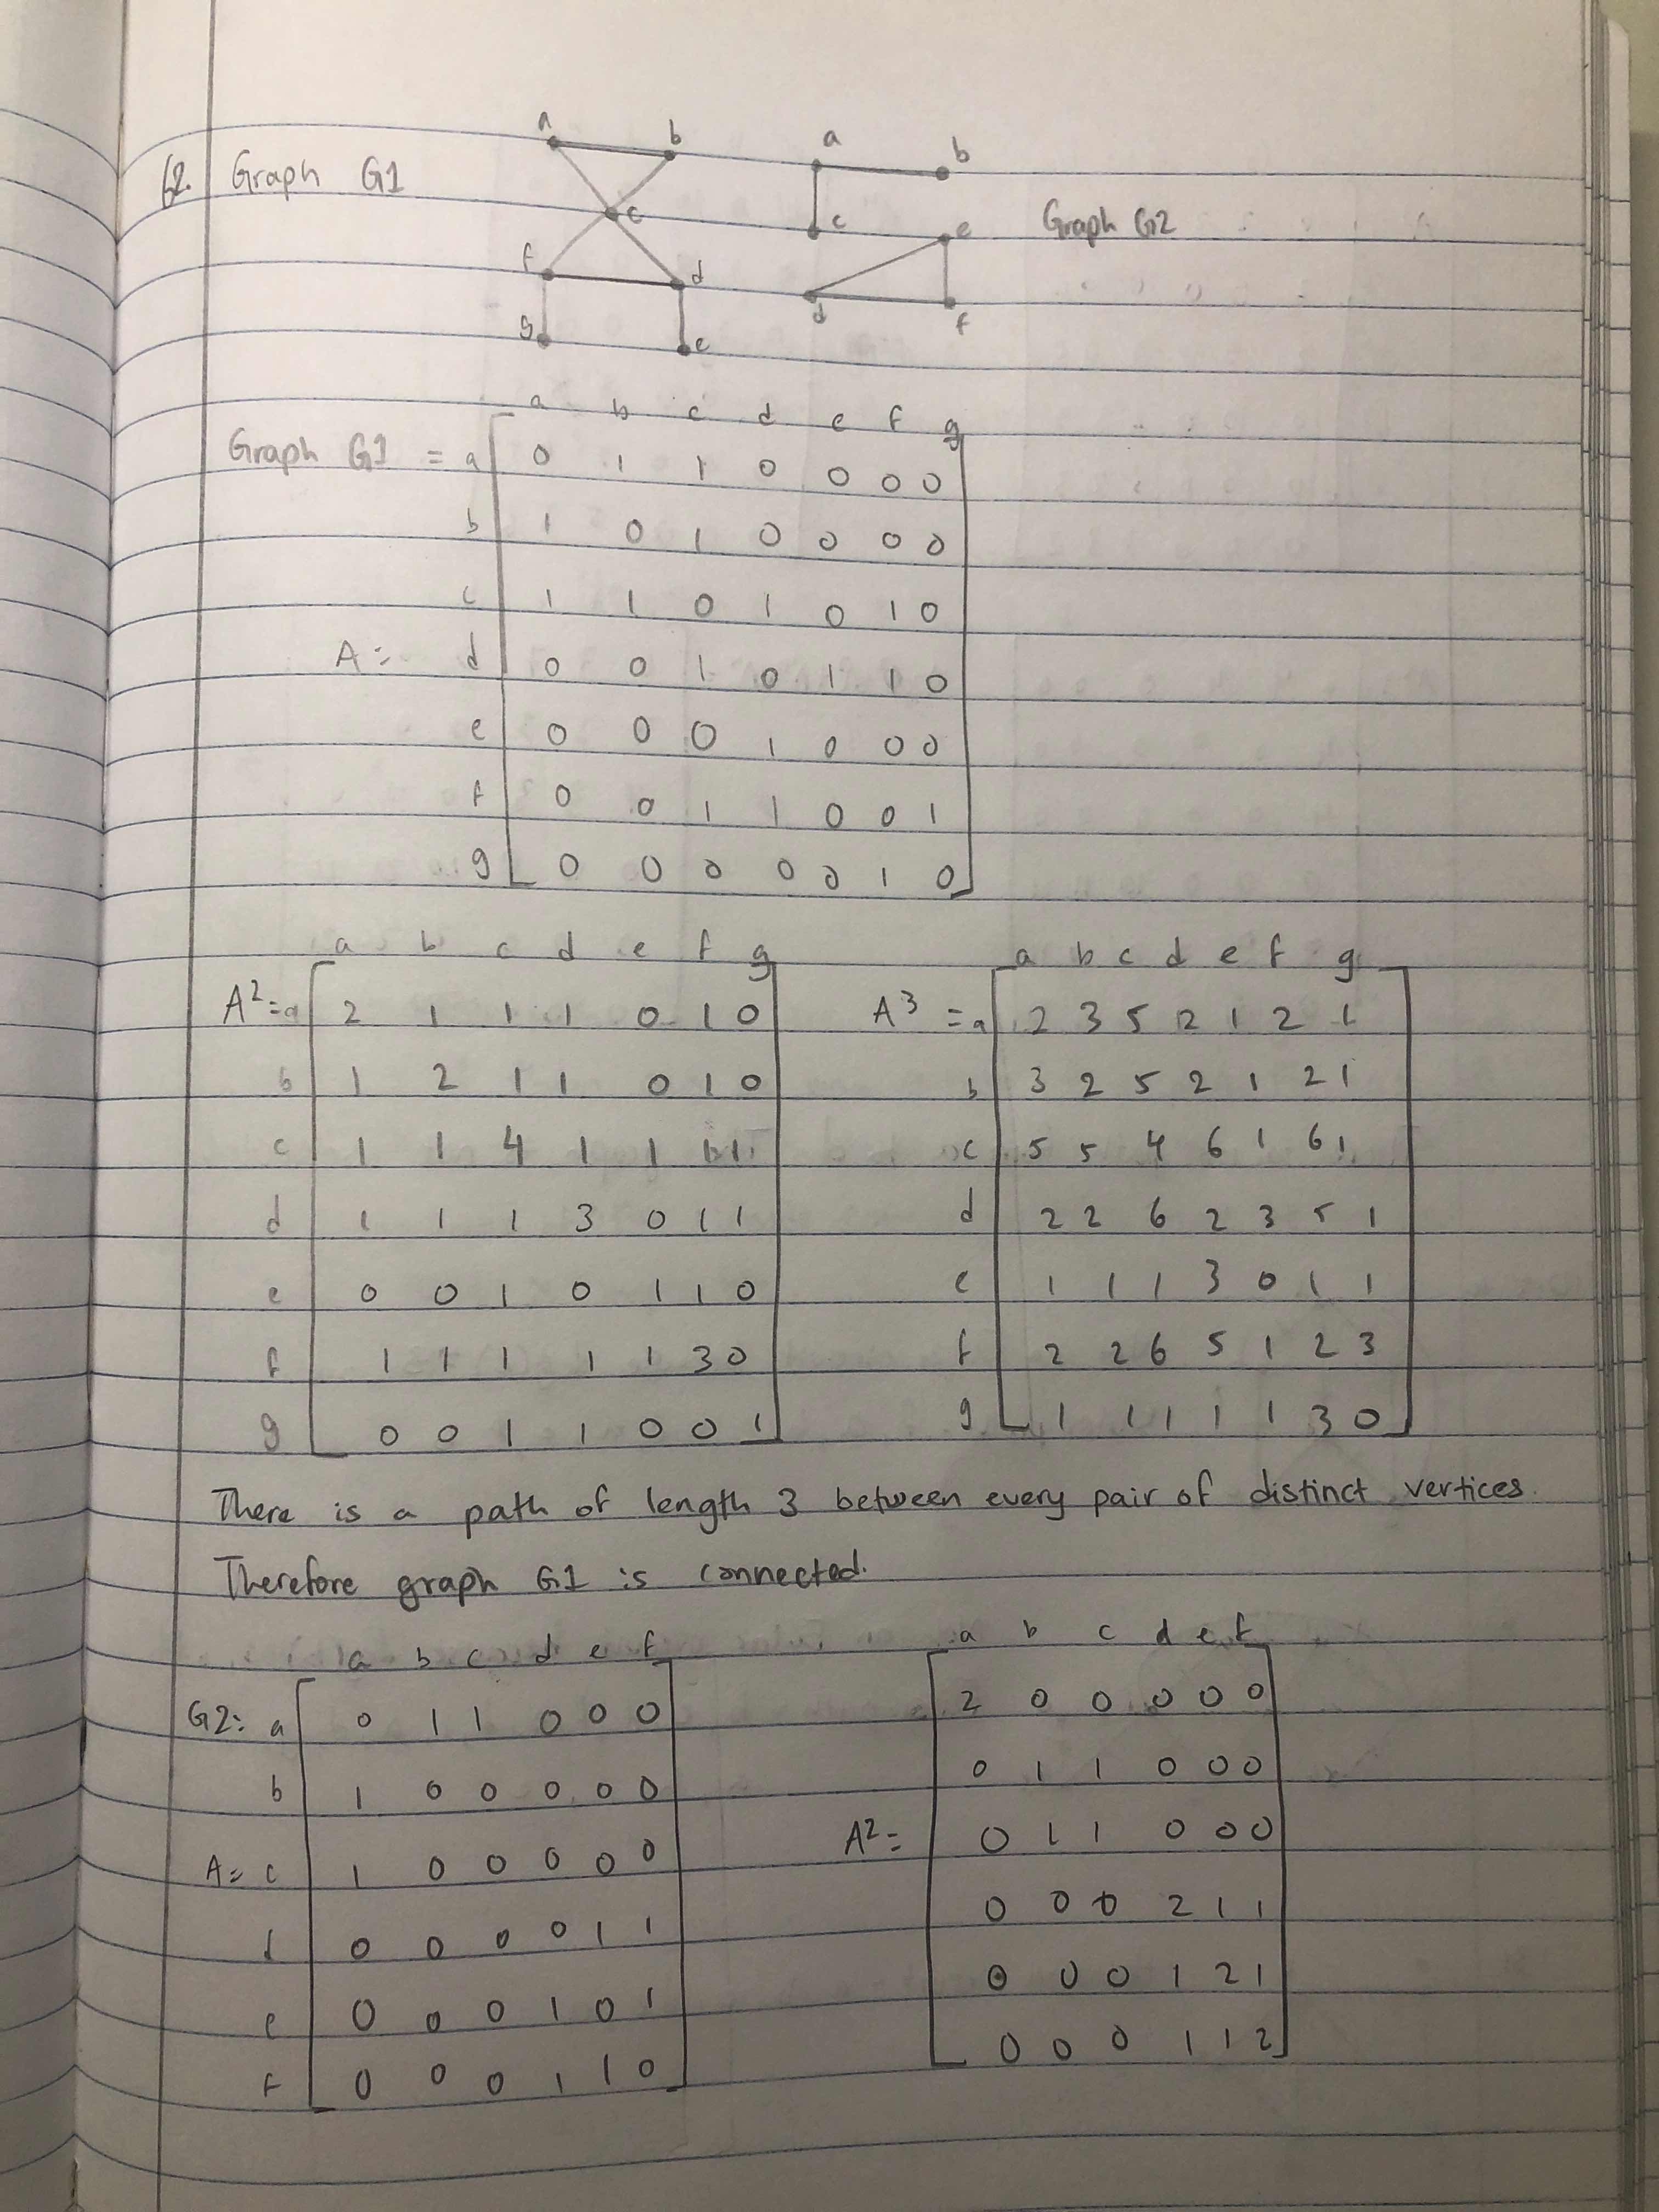 62. Graph G1
a b
c
f d
g e
a b
c e
d f
Graph G2
a b c d e f g
Graph G1 = a 0 1 1 0 0 0 0
b 1 0 1 0 0 0 0
c 1 1 0 1 0 1 0
A = d 0 0 1 0 1 1 0
e 0 0 0 1 0 0 0
f 0 0 1 1 0 0 1
g 0 0 0 0 0 1 0
a b c d e f g
A² = a 2 1 1 1 0 1 0
b 1 2 1 1 0 1 0
c 1 1 4 1 1 1 1
d 1 1 1 3 0 1 1
e 0 0 1 0 1 1 0
f 1 1 1 1 1 3 0
g 0 0 1 1 0 0 1
a b c d e f g
A³ = a 2 3 5 2 1 2 1
b 3 2 5 2 1 2 1
c 5 5 4 6 1 6 1
d 2 2 6 2 3 5 1
e 1 1 1 3 0 1 1
f 2 2 6 5 1 2 3
g 1 1 1 1 1 3 0
There is a path of length 3 between every pair of distinct vertices.
Therefore graph G1 is connected.
a b c d e f
G2: a 0 1 1 0 0 0
b 1 0 0 0 0 0
A = c 1 0 0 0 0 0
d 0 0 0 0 1 1
e 0 0 0 1 0 1
f 0 0 0 1 1 0
a b c d e f
2 0 0 0 0 0
0 1 1 0 0 0
A² = 0 1 1 0 0 0
0 0 0 2 1 1
0 0 0 1 2 1
0 0 0 1 1 2